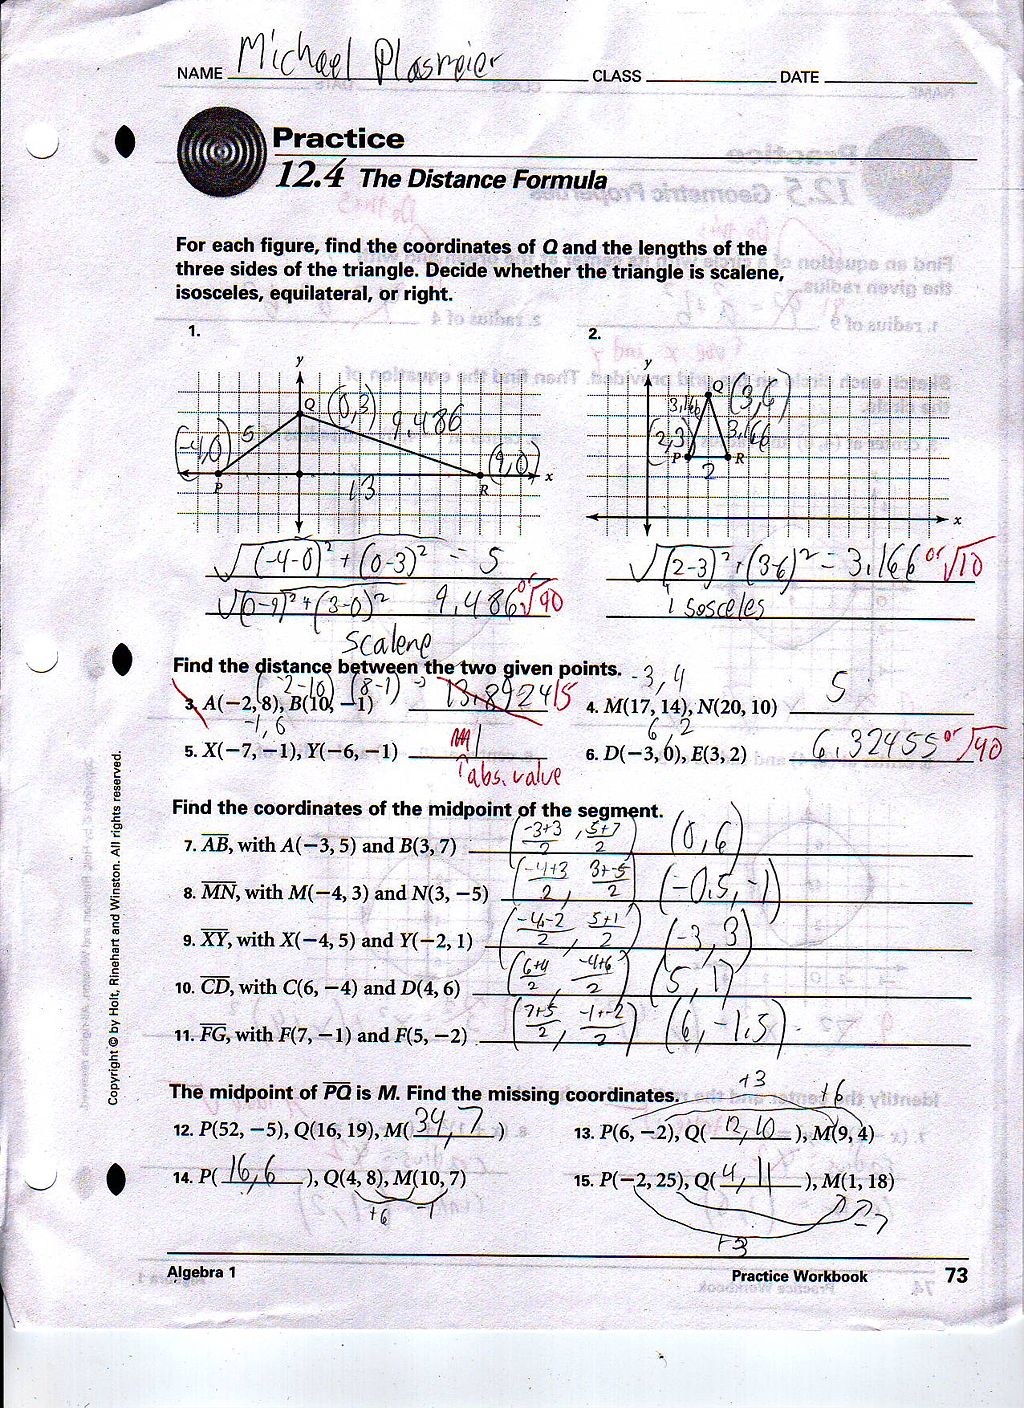 NAME Michael Plasmeier CLASS DATE
Practice
12.4 The Distance Formula
For each figure, find the coordinates of Q and the lengths of the
three sides of the triangle. Decide whether the triangle is scalene,
isosceles, equilateral, or right.
1.
2.
y
Q (0,3) 9.486
(-4,0) 5
(9,0) x
P 13 R
y
Q (3,6)
3.166
(2,3) 3.166
P R
2
x
√(-4-0)² + (0-3)² = 5
√(0-9)² + (3-0)² 9.486 or √90
scalene
√(2-3)² + (3-6)² = 3.166 or √10
isosceles
Find the distance between the two given points.
(-2-10) (8-1)
-3, 4
3. A(−2, 8), B(10, −1) 13.892415
4. M(17, 14), N(20, 10) 5
-1, 6
6, 2
5. X(−7, −1), Y(−6, −1) 1
↑abs. value
6. D(−3, 0), E(3, 2) 6.32455 or √40
Find the coordinates of the midpoint of the segment.
7. AB, with A(−3, 5) and B(3, 7) (-3+3/2, 5+7/2) (0,6)
8. MN, with M(−4, 3) and N(3, −5) (-4+3/2, 3+-5/2) (-0.5, -1)
9. XY, with X(−4, 5) and Y(−2, 1) (-4+-2/2, 5+1/2) (-3, 3)
10. CD, with C(6, −4) and D(4, 6) (6+4/2, -4+6/2) (5, 1)
11. FG, with F(7, −1) and F(5, −2) (7+5/2, -1+-2/2) (6, -1.5)
The midpoint of PQ is M. Find the missing coordinates.
+3 +6
12. P(52, −5), Q(16, 19), M( 34, 7 )
13. P(6, −2), Q( 12, 10 ), M(9, 4)
14. P( 16, 6 ), Q(4, 8), M(10, 7)
+6 -1
15. P(−2, 25), Q( 4, 11 ), M(1, 18)
-7
+3
Algebra 1 Practice Workbook 73
Copyright © by Holt, Rinehart and Winston. All rights reserved.